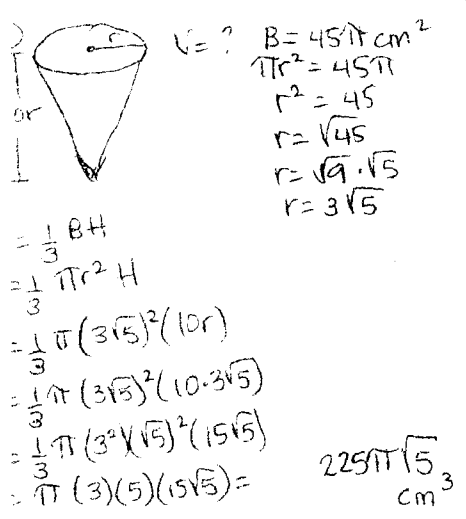 r
or
V = ? B = 45π cm²
πr² = 45π
r² = 45
r = √45
r = √9 · √5
r = 3√5
= 1/3 BH
= 1/3 πr² H
= 1/3 π (3√5)² (10r)
= 1/3 π (3√5)² (10·3√5)
= 1/3 π (3²)(√5)² (15√5)
= π (3)(5)(15√5) =
225π√5 cm³